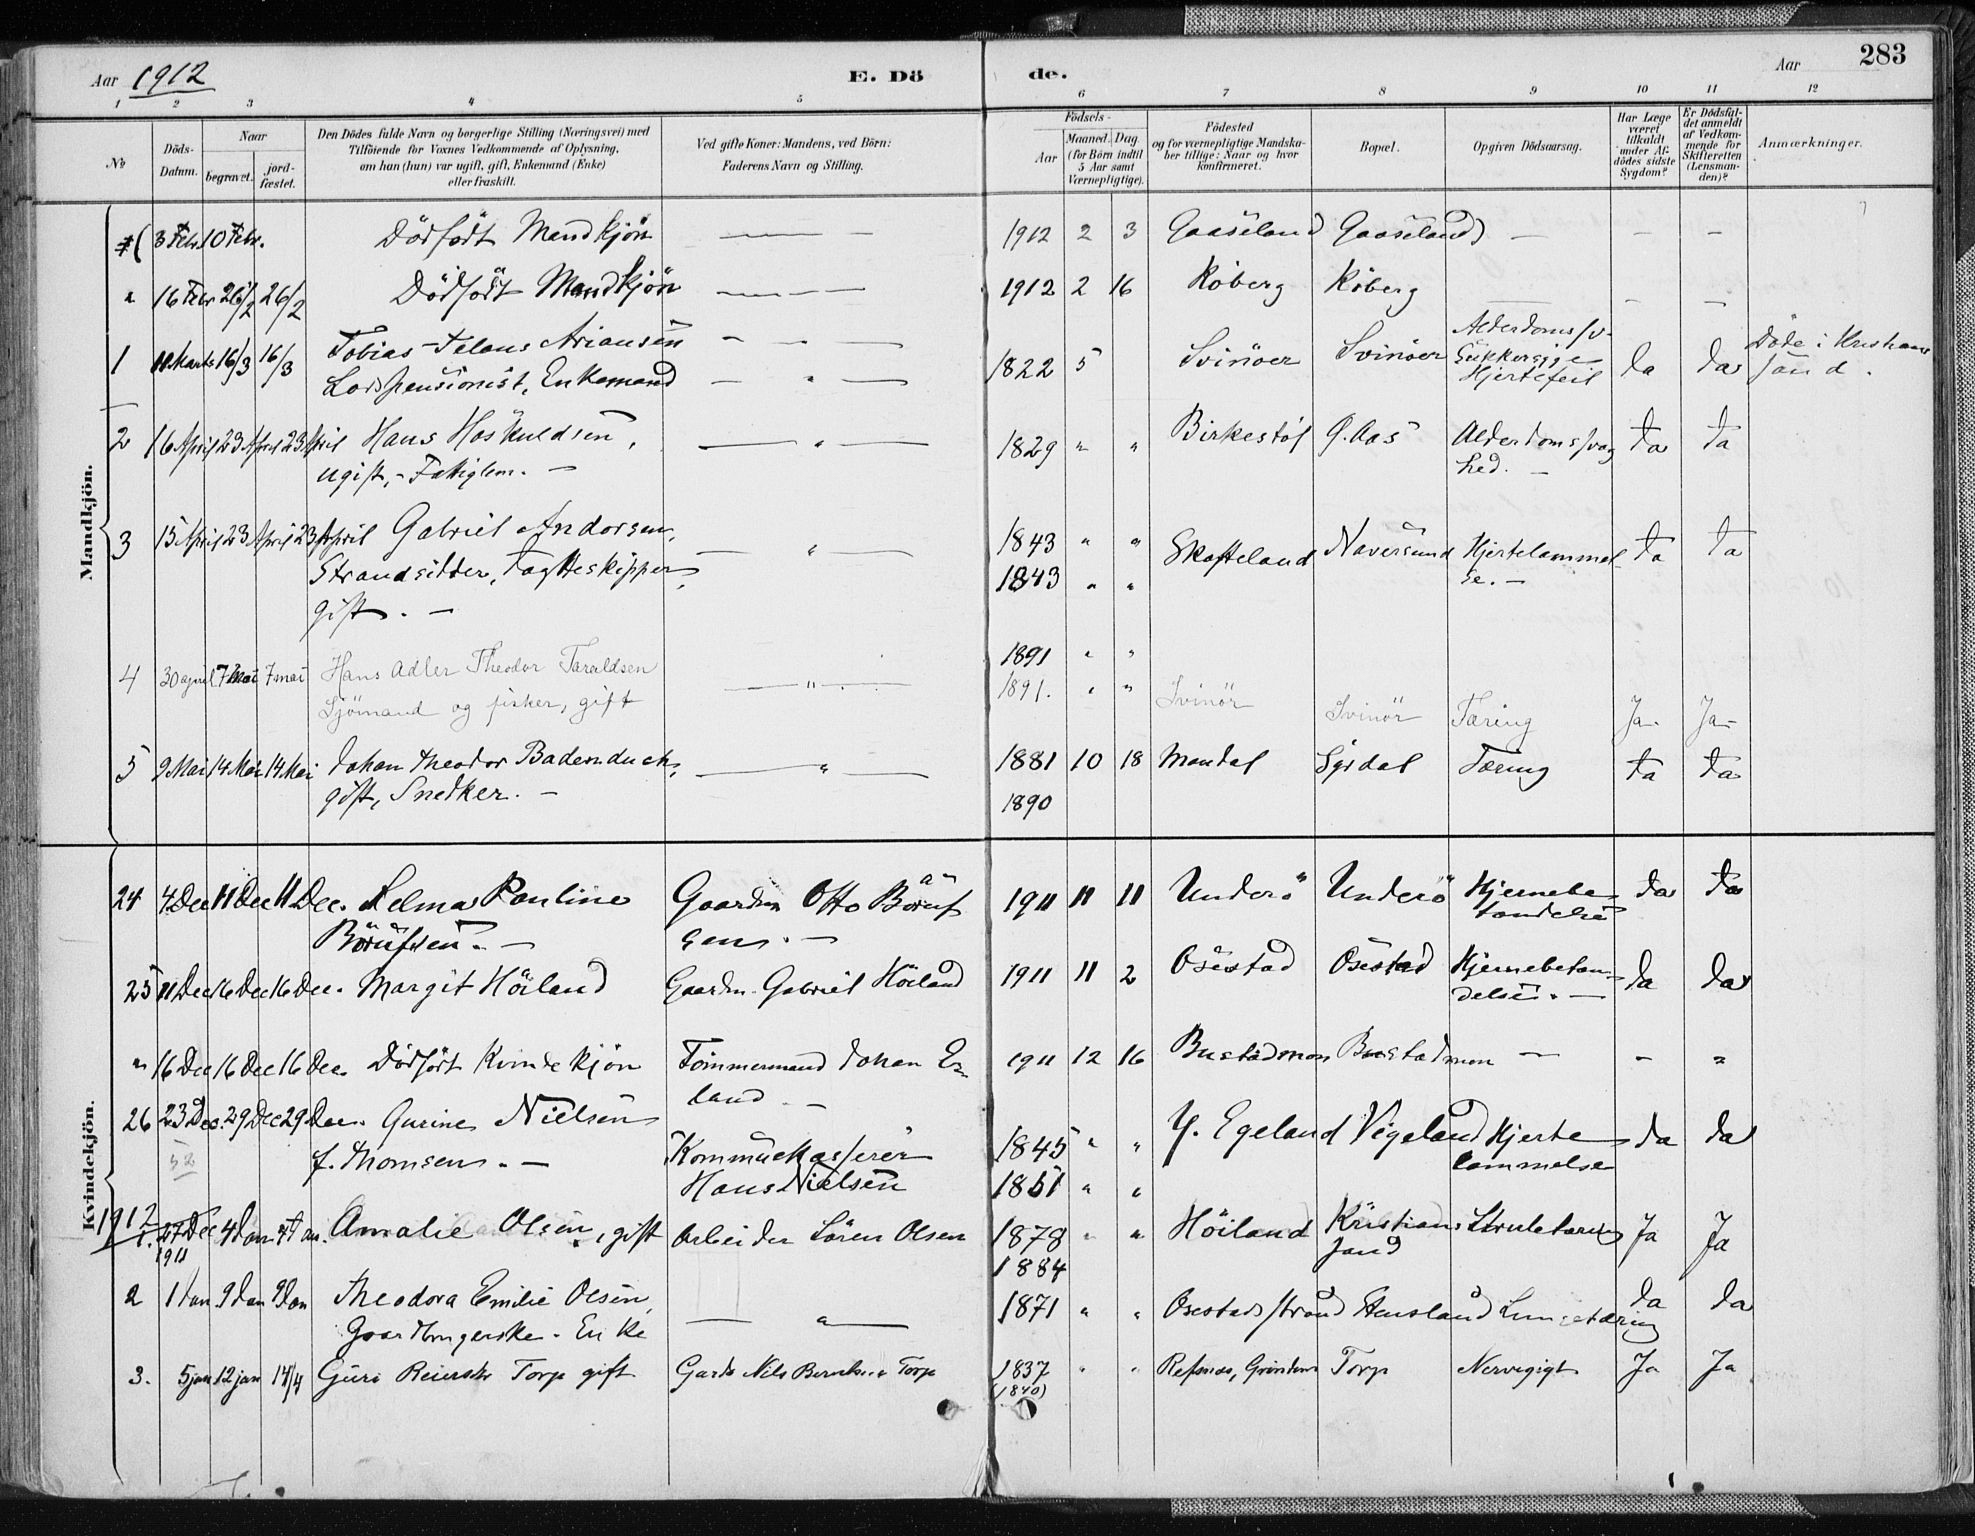 Aar 1912 E. Dö de. Aar 283
1 2 3 4 5 6 7 8 9 10 11 12
No
Döds-
Datum.
Naar
begravet.
jord-
fæstet.
Den Dödes fulde Navn og borgerlige Stilling (Næringsvei) med
Tilföiende for Voxnes Vedkommende af Oplysning,
om han (hun) var ugift, gift, Enkemand (Enke)
eller fraskilt.
Ved gifte Koner: Mandens, ved Börn:
Faderens Navn og Stilling.
Födsels-
Aar
Maaned. Dag.
(for Börn indtil
5 Aar samt
Værnepligtige).
Födested
og for værnepligtige Mandska-
ber tillige: Naar og hvor
konfirmeret.
Bopæl.
Opgiven Dödsaarsag.
Har Læge
været
tilkaldt
under Af-
dödes sidste
Sygdom?
Er Dödsfal-
det anmeldt
af Vedkom-
mende for
Skifteretten
(Lensman-
den)?
Anmærkninger.
Mandkjön.
3 Febr. 10 Febr. Dödfödt Mandkjön — 1912 2 3 Gaaseland Gaaseland — — —
" 16 Febr 26/2 26/2 Dödfödt Mandkjön — 1912 2 16 Röberg Röberg — — —
1 11 Marts 16/3 16/3 Tobias Ariansen — " — 1822 5 Svinöer Svinöer Alderdomssv- Ja Ja Döde i Kristians
Lodspensionist, Enkemand — " — Sukkersyge sand.
Hjertefeil
2 16 April 23 April 23 April Hans Höskuldsen, — " — 1829 " " Birkestöl Aas Alderdomssvag Ja Ja
ugift, - Fattiglem. — hed. —
3 15 April 23 April 23 April Gabriel Andorsen, — " — 1843 " " Skofteland Naversund Hjertelammel Ja Ja
Strandsidder, Jagtteskipper, 1843 " " se. —
gift. —
4 30 april 7 Mai 7 mai Hans Adler Theodor Taraldsen — " — 1891 " "
Sjömand og fisker, gift 1891. " " Svinör Svinör Tæring Ja- Ja-
5 9 Mai 14 Mai 14 Mai Johan Theodor Badenduch, — " — 1881 10 18 Mandal Syrdal Tæring Ja Ja
gift, Snedker. — 1890
Kvindekjön.
24 4 Dec 11 Dec 11 Dec. Selma Pauline Gaardm Otto 1911 11 11 Underö Underö Hjernebe Ja Ja
sens. — tændelse
25 11 Dec 16 Dec 16 Dec. Margit Höiland Gaardm. Gabriel Höiland 1911 11 2 Osestad Osestad Hjernebetæn- Ja Ja
delse. —
" 16 Dec 16 Dec 16 Dec. Dödfödt Kvindekjön Tömmermand Johan 1911 12 16 Bustadmon Bustadmon — - "
land. —
26 23 Dec. 29 Dec 29 Dec. Gurine Nielsen 1845 " " Y. Egeland Vigeland Hjerte Ja Ja
52 f. Thomsen. — Kommunekasserer lammelse
Hans Nielsen 1851 " "
1912
1. 27 Dec 4 Jan 4 Jan. Amalie Olsen, gift Arbeider Sören Olsen 1878 " " Höiland Kristian Strubetæring Ja Ja
1911 1884 sand
2 1 Jan 9 Jan 9 Jan Theodora Emilie Olsen, — " — 1871 " " Osestadstrand Stensland Lungetæring Ja Ja
Gaardbrugerske. Enke
3. 5 jan 12 jan 14/4 Guri Reiersdtr Torp gift Gardb Nils Berntsen Torp 1837 " " Refsnes, Grindem Torp Nervegigt Ja Ja
(1840)